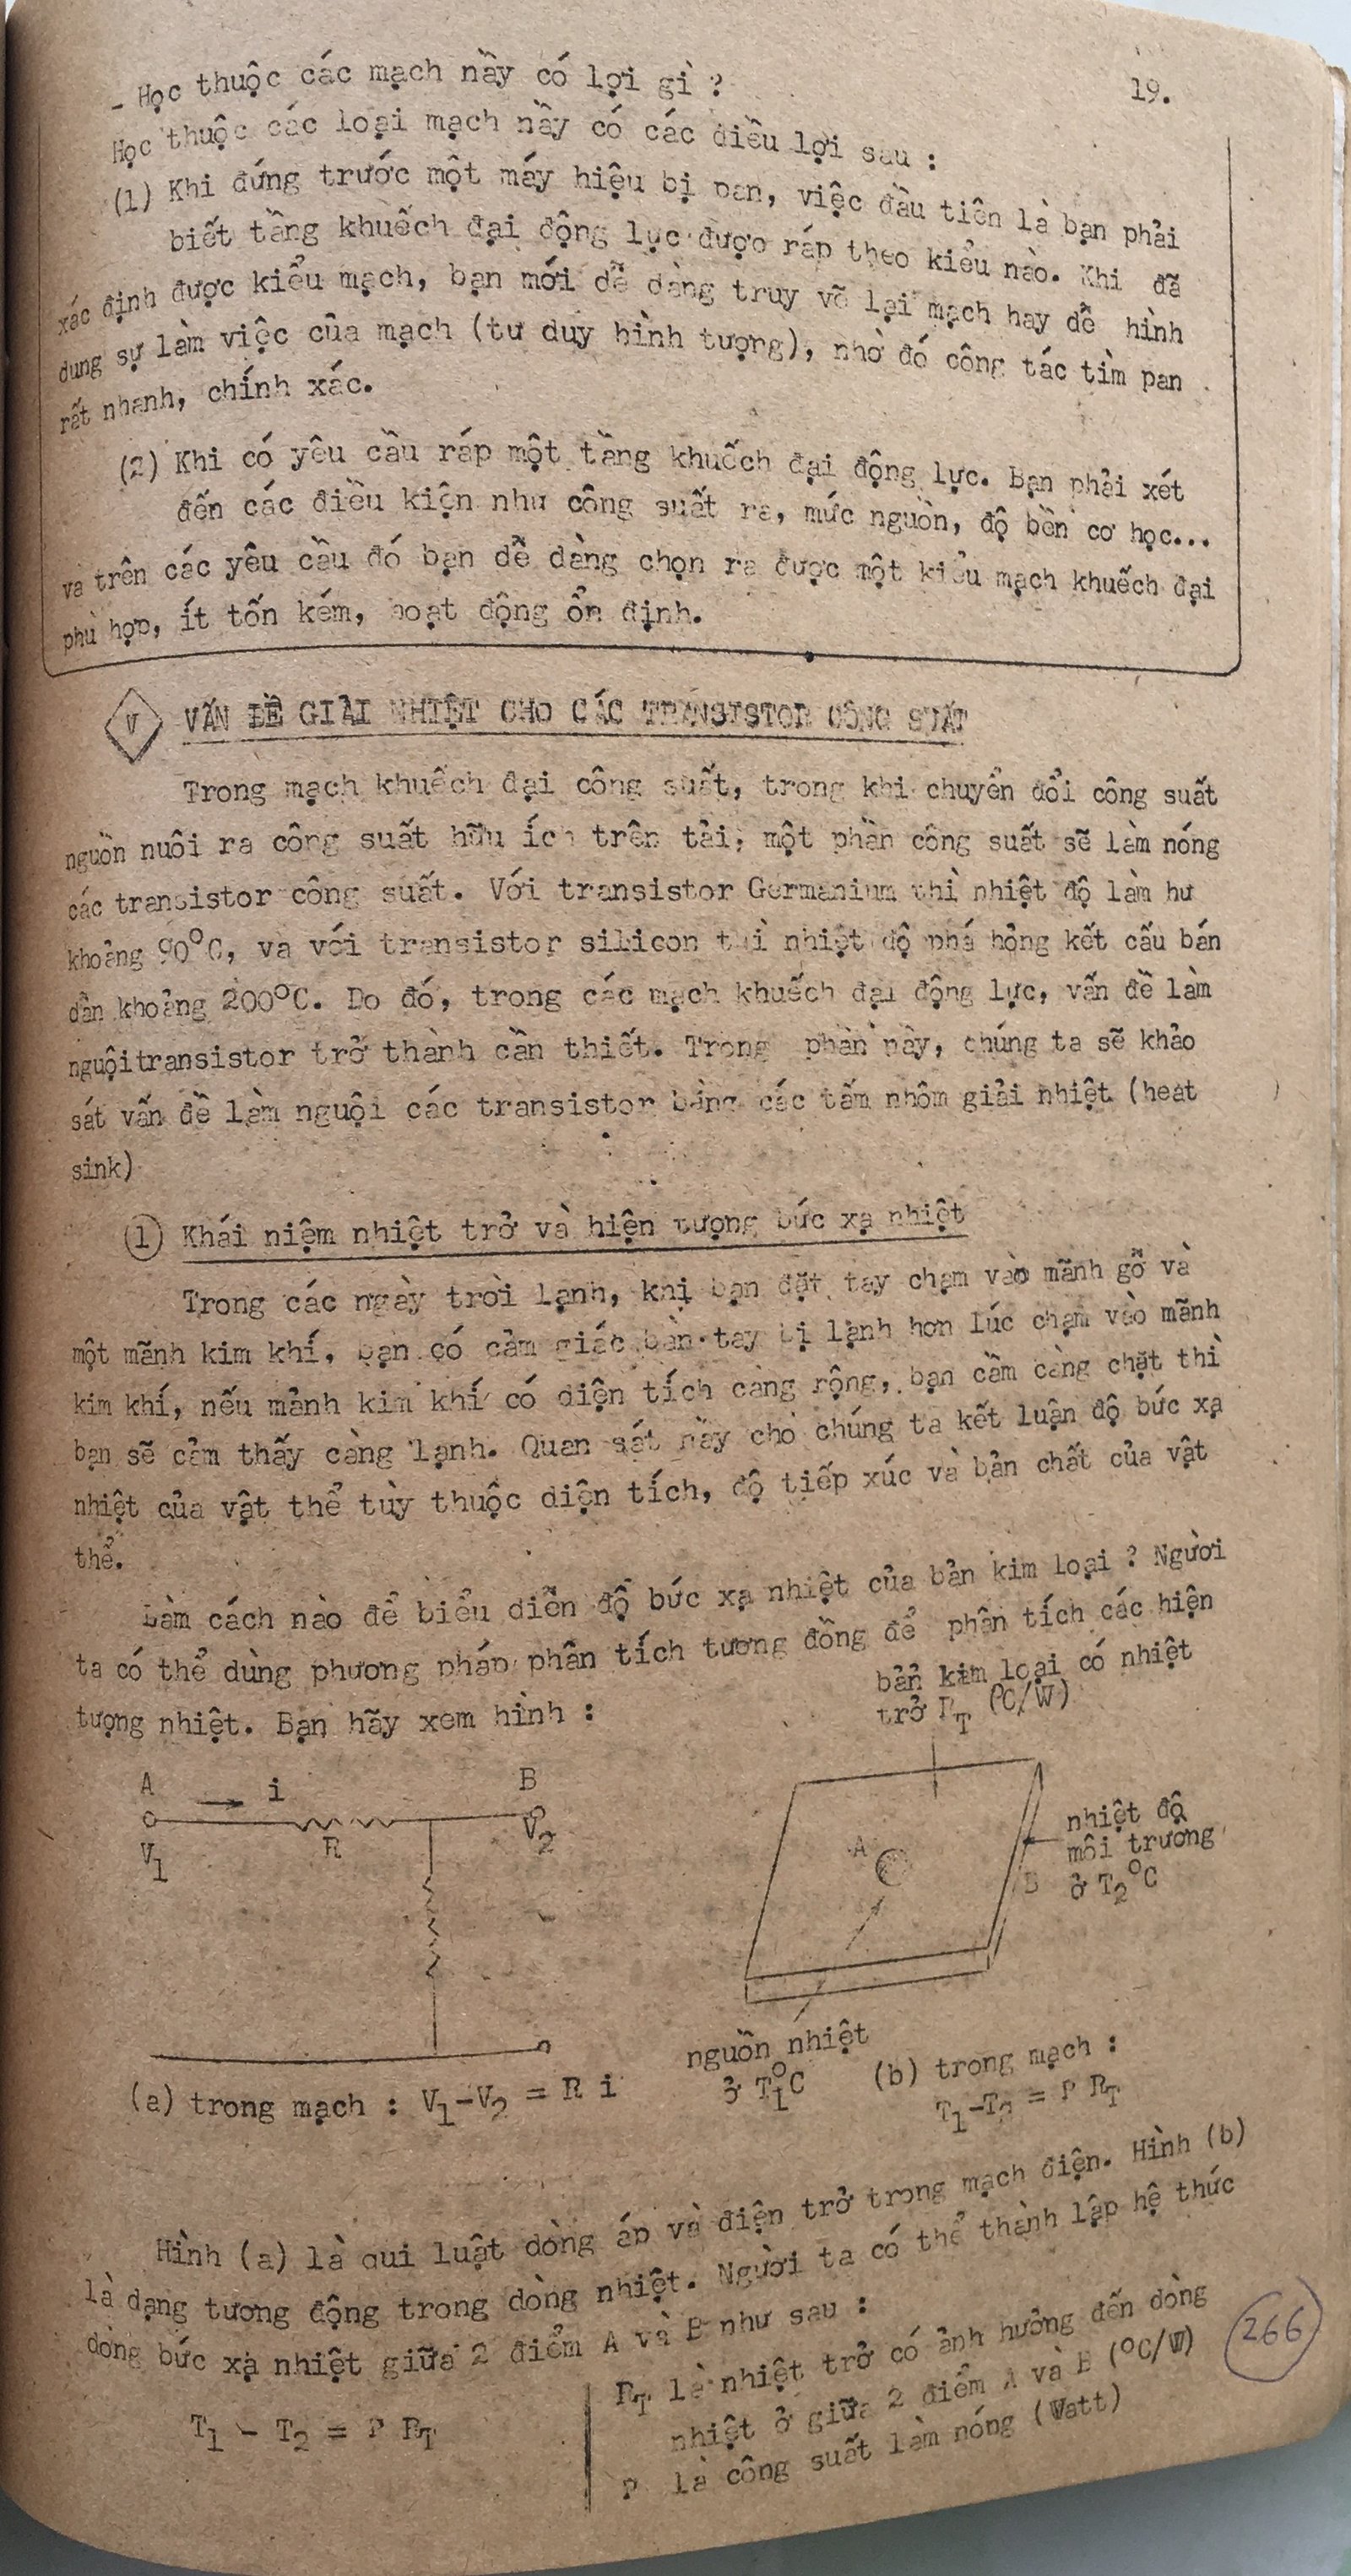 19.
- Học thuộc các mạch nầy có lợi gì ?
Học thuộc các loại mạch nầy có các điều lợi sau :
(1) Khi đứng trước một máy hiệu bị pan, việc đầu tiên là bạn phải
biết tầng khuếch đại động lực được ráp theo kiểu nào. Khi đã
xác định được kiểu mạch, bạn mới dễ dàng truy vẽ lại mạch hay dễ hình
dung sự làm việc của mạch (tư duy hình tượng), nhờ đó công tác tìm pan
rất nhanh, chính xác.
(2) Khi có yêu cầu ráp một tầng khuếch đại động lực. Bạn phải xét
đến các điều kiện như công suất ra, mức nguồn, độ bền cơ học...
và trên các yêu cầu đó bạn dễ dàng chọn ra được một kiểu mạch khuếch đại
phù hợp, ít tốn kém, hoạt động ổn định.
V VẤN ĐỀ GIẢI NHIỆT CHO CÁC TRANSISTOR CÔNG SUẤT
Trong mạch khuếch đại công suất, trong khi chuyển đổi công suất
nguồn nuôi ra công suất hữu ích trên tải, một phần công suất sẽ làm nóng
các transistor công suất. Với transistor Germanium thì nhiệt độ làm hư
khoảng 90°C, và với transistor silicon thì nhiệt độ phá hỏng kết cấu bán
dẫn khoảng 200°C. Do đó, trong các mạch khuếch đại động lực, vấn đề làm
nguội transistor trở thành cần thiết. Trong phần này, chúng ta sẽ khảo
sát vấn đề làm nguội các transistor bằng các tấm nhôm giải nhiệt (heat
sink)
(1) Khái niệm nhiệt trở và hiện tượng bức xạ nhiệt
Trong các ngày trời lạnh, khi bạn đặt tay chạm vào mãnh gỗ và
một mãnh kim khí, bạn có cảm giác bàn tay bị lạnh hơn lúc chạm vào mãnh
kim khí, nếu mảnh kim khí có diện tích càng rộng, bạn cầm càng chặt thì
bạn sẽ cảm thấy càng lạnh. Quan sát này cho chúng ta kết luận độ bức xạ
nhiệt của vật thể tùy thuộc diện tích, độ tiếp xúc và bản chất của vật
thể.
Làm cách nào để biểu diễn độ bức xạ nhiệt của bản kim loại ? Người
ta có thể dùng phương pháp phân tích tương đồng để phân tích các hiện
tượng nhiệt. Bạn hãy xem hình :
bản kim loại có nhiệt
trở R_T (°C/W)
A i B
V1 R V2
A
B
nhiệt độ
môi trường
ở T2°C
nguồn nhiệt
ở T1°C
(a) trong mạch : V1-V2 = R i
(b) trong mạch :
T1-T2 = P R_T
Hình (a) là qui luật dòng áp và điện trở trong mạch điện. Hình (b)
là dạng tương động trong dòng nhiệt. Người ta có thể thành lập hệ thức
dòng bức xạ nhiệt giữa 2 điểm A và B như sau :
T1 - T2 = P R_T
R_T là nhiệt trở có ảnh hưởng đến dòng
nhiệt ở giữa 2 điểm A và B (°C/W)
P là công suất làm nóng (Watt)
266